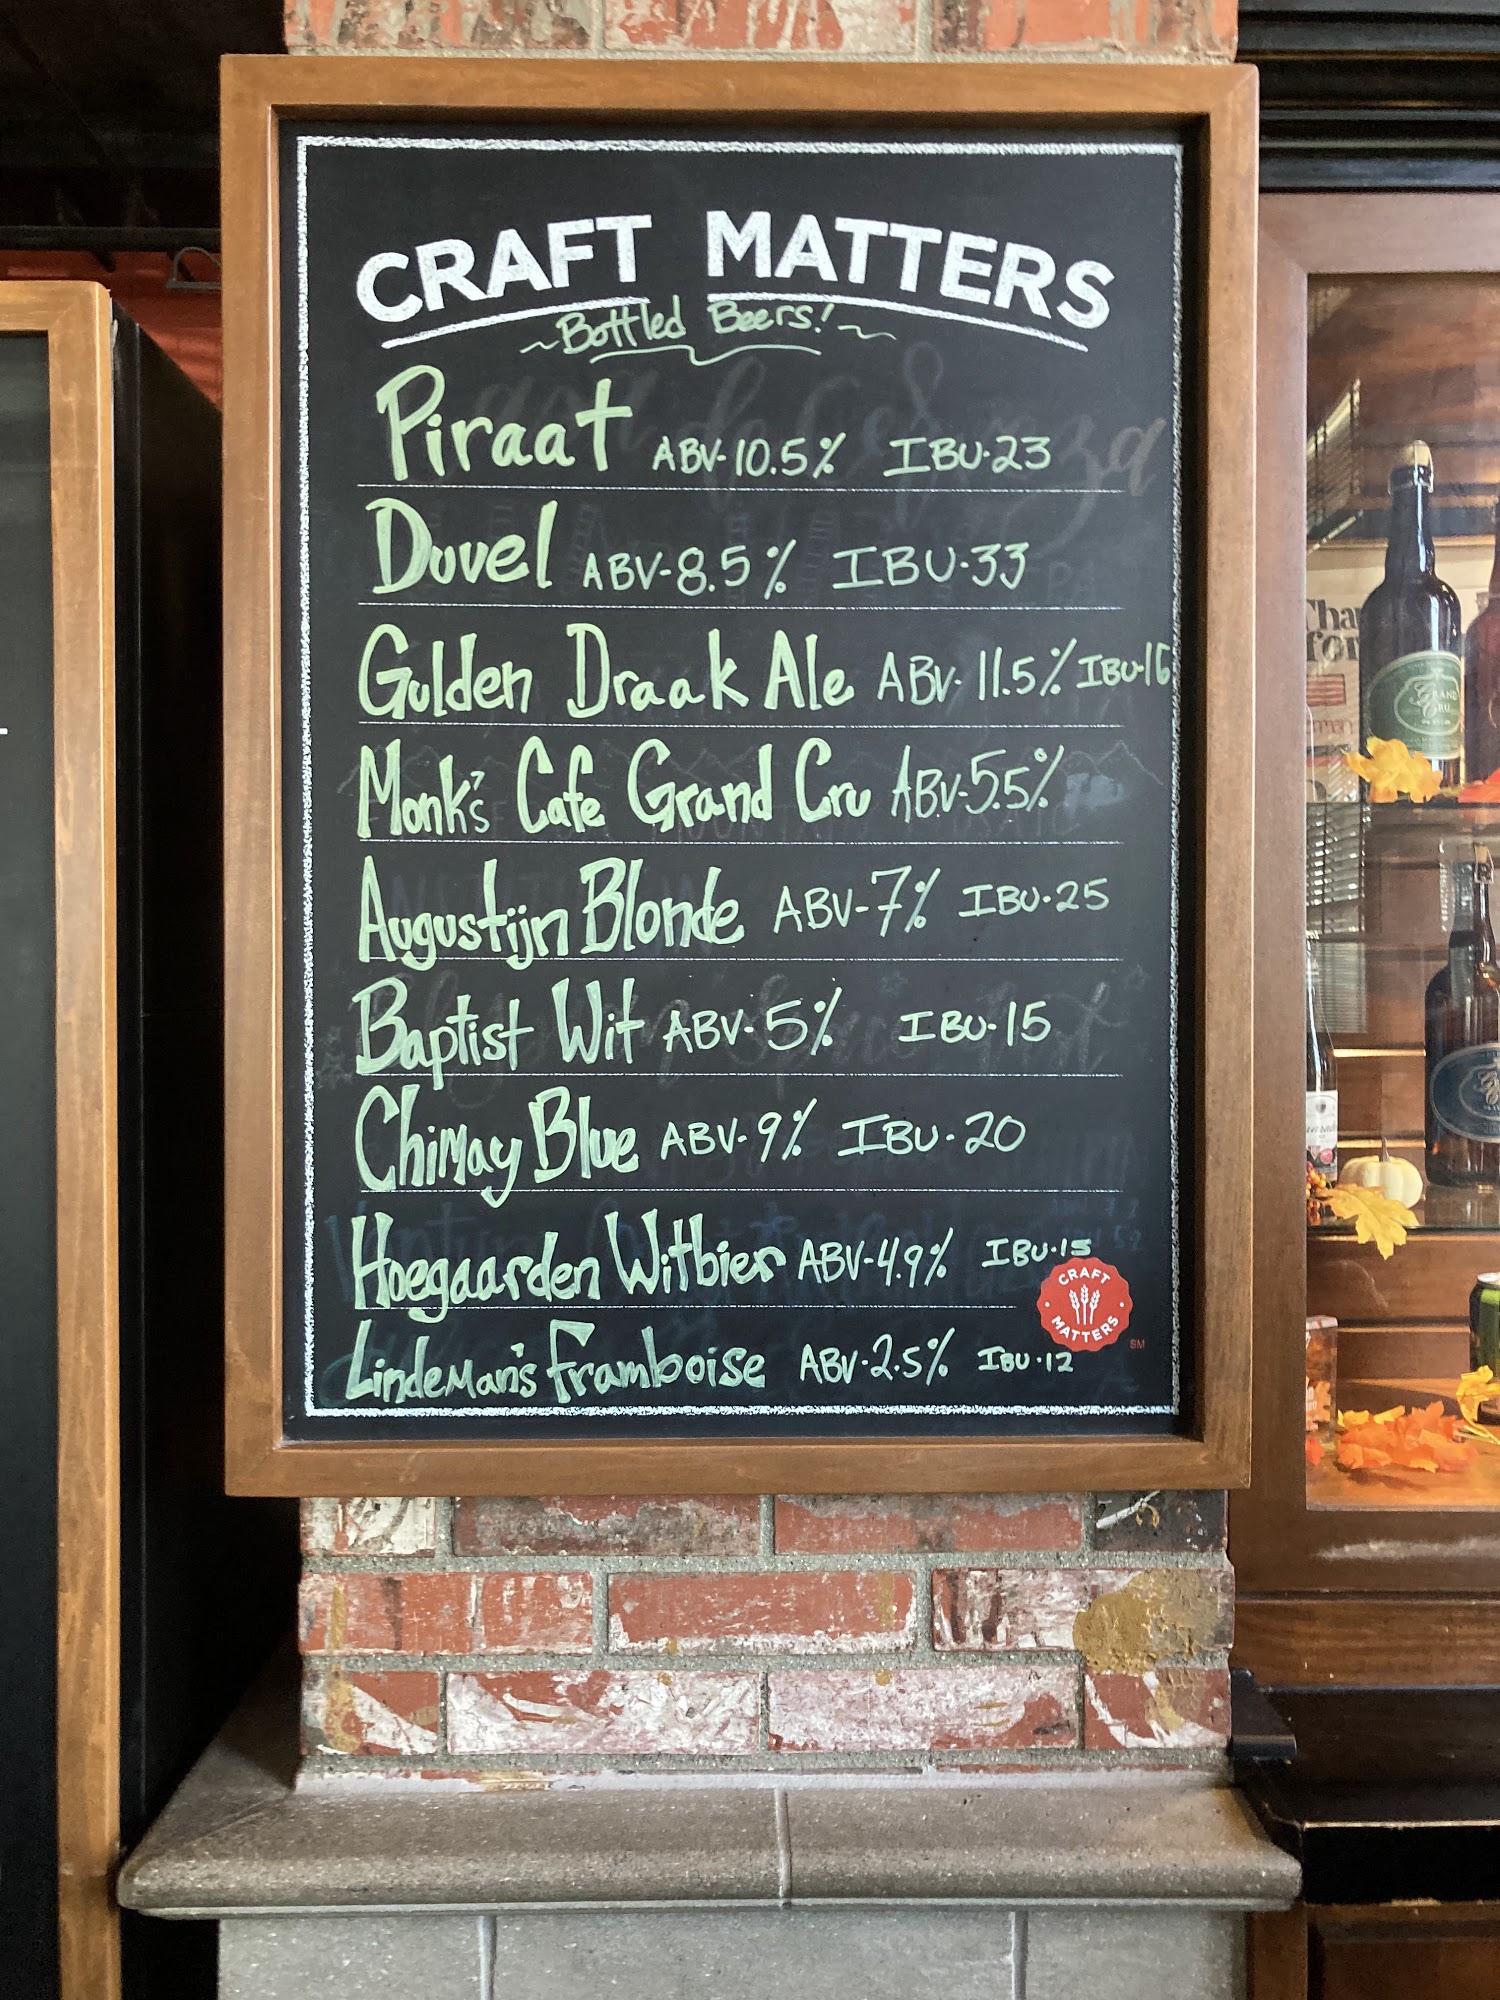 CRAFT MATTERS
~Bottled Beers!~
Piraat ABV-10.5% IBU-23
Duvel ABV-8.5% IBU-33
Gulden Draak Ale ABV-11.5% IBU-16
Monk's Cafe Grand Cru ABV-5.5%
Augustijn Blonde ABV-7% IBU-25
Baptist Wit ABV-5% IBU-15
Chimay Blue ABV-9% IBU-20
Hoegaarden Witbier ABV-4.9% IBU-15
CRAFT MATTERS SM
Lindeman's Framboise ABV-2.5% IBU-12
GRAND
CRU